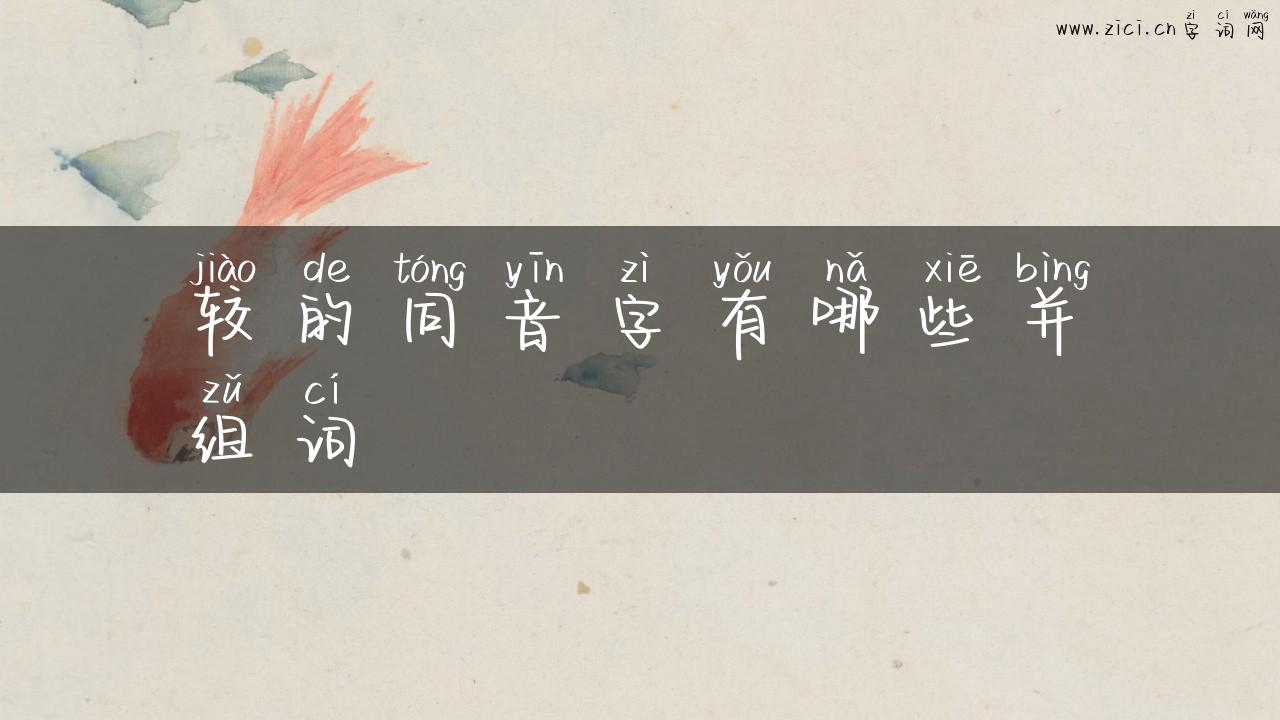 zì cí wǎng
www.zici.cn 字词网
jiào de tóng yīn zì yǒu nǎ xiē bìng
较的同音字有哪些并
zǔ cí
组词